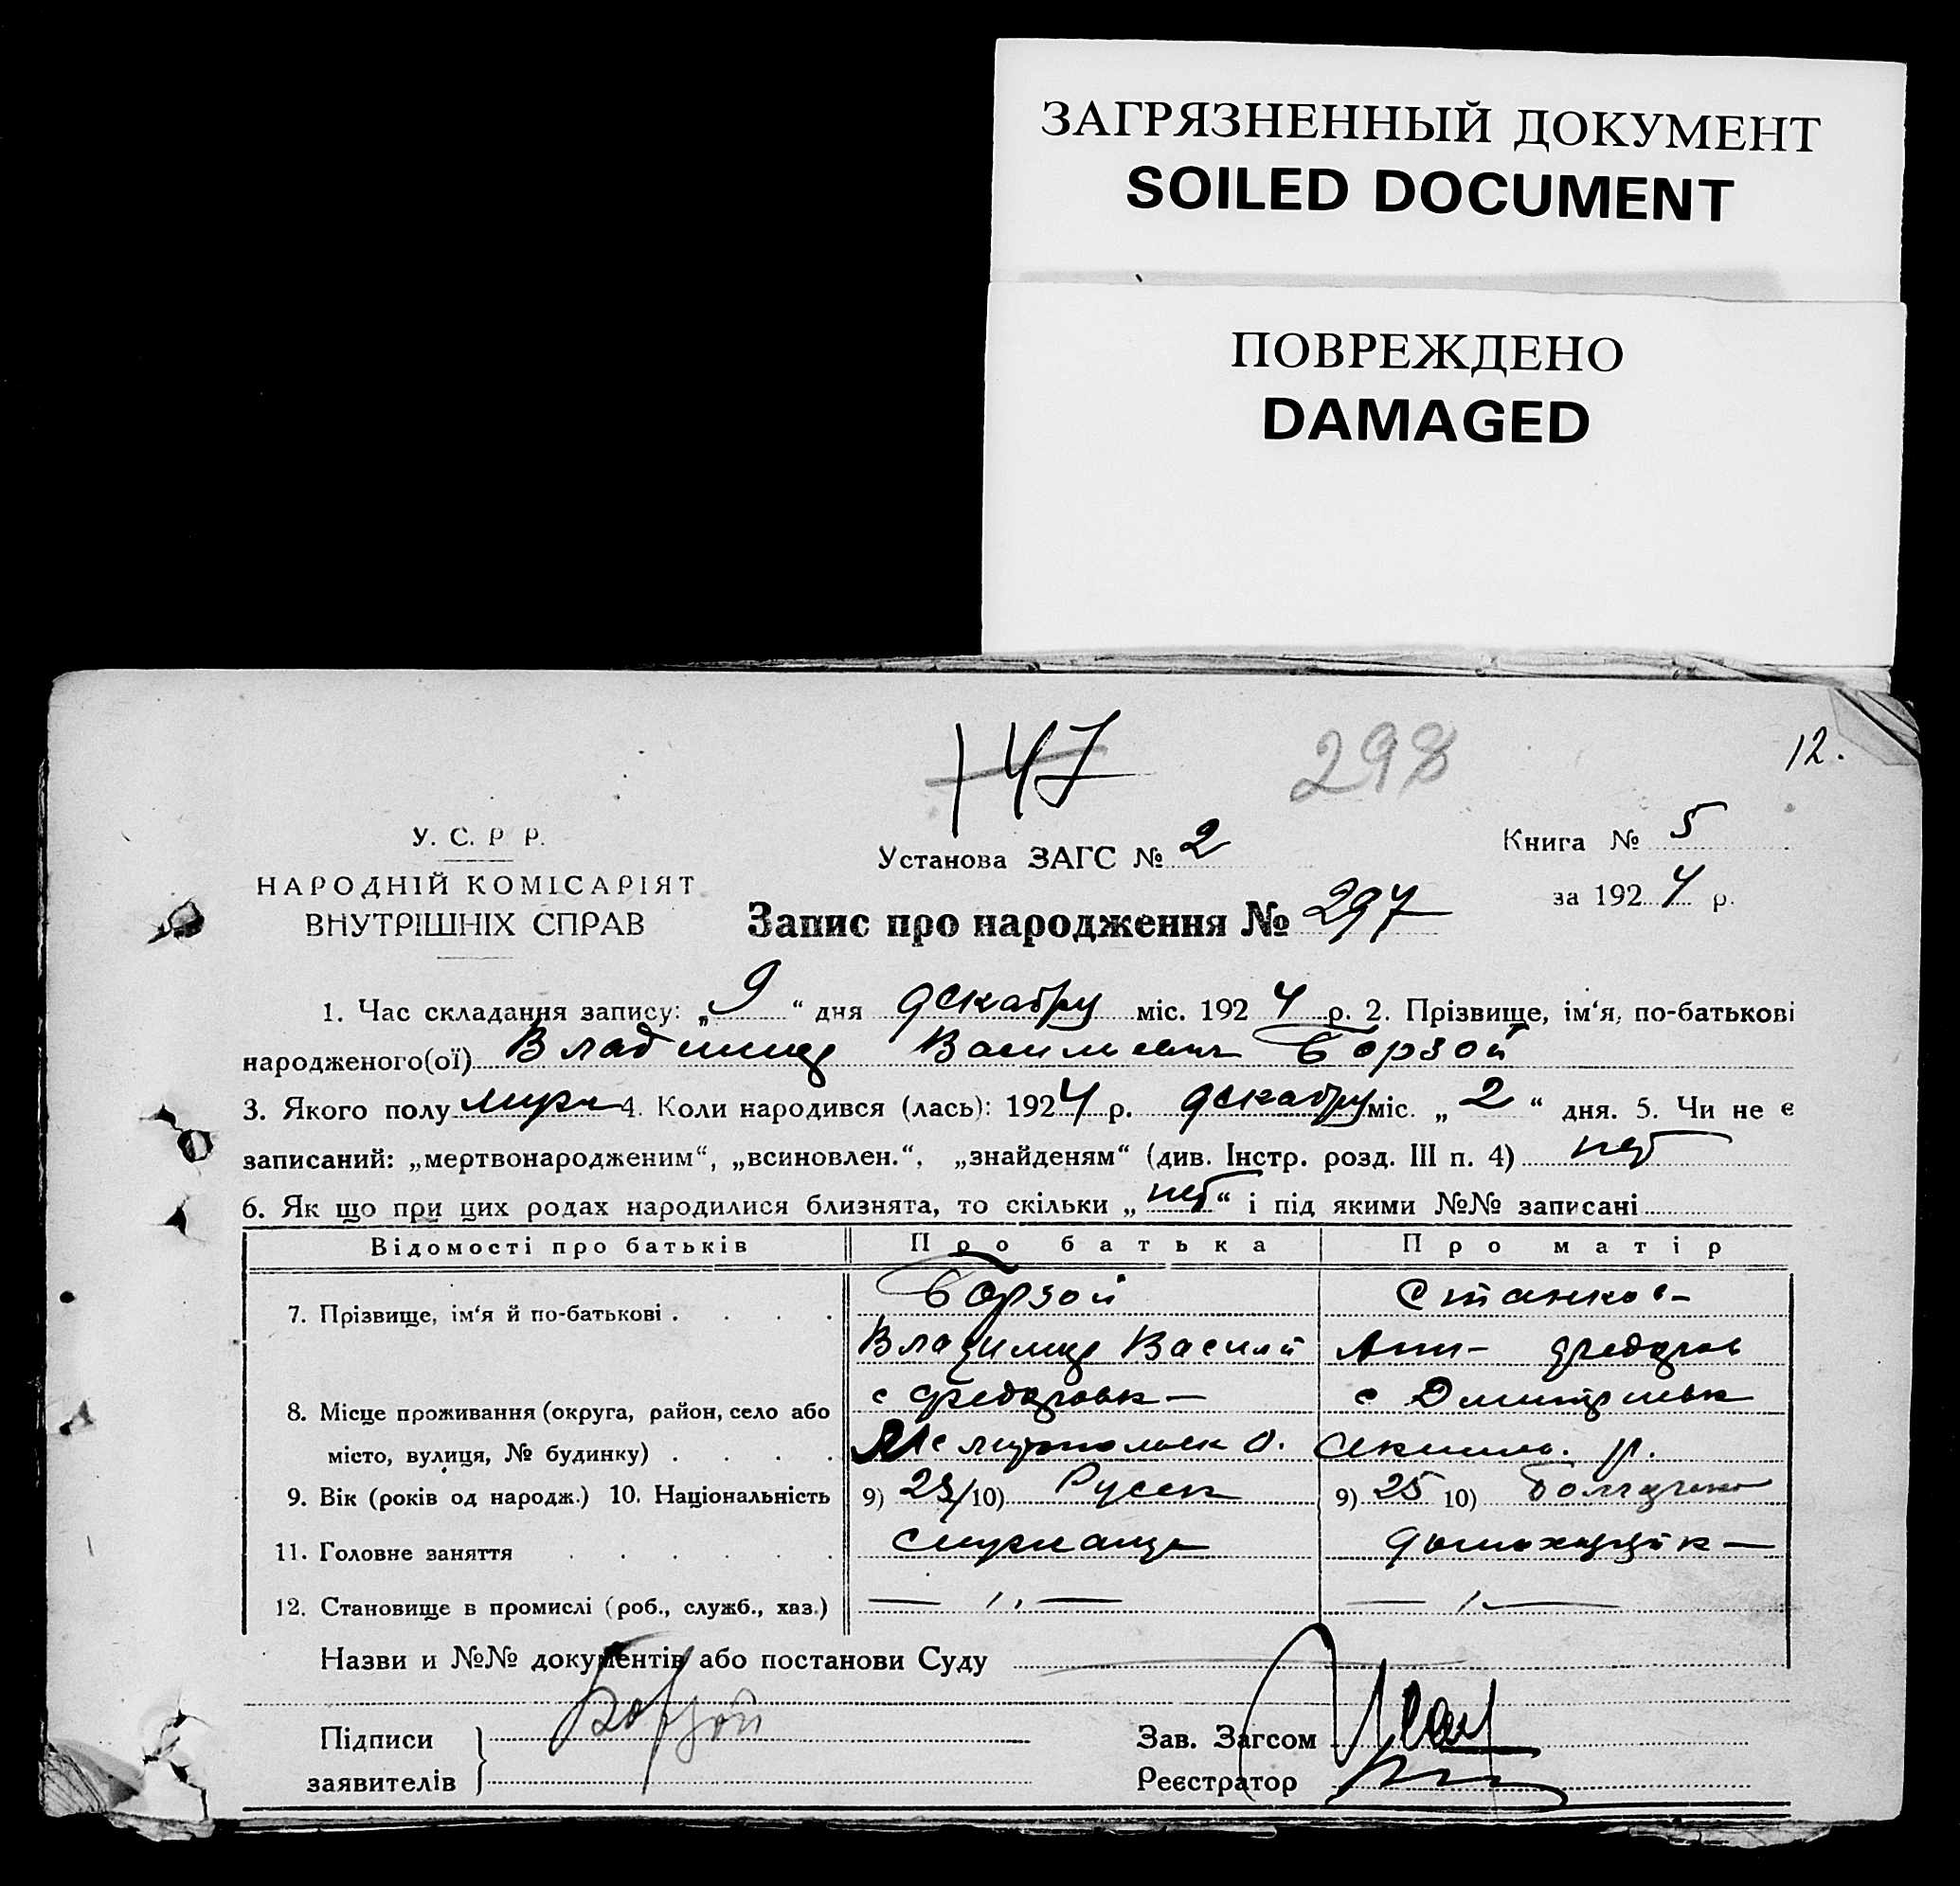 ЗАГРЯЗНЕННЫЙ ДОКУМЕНТ
SOILED DOCUMENT
ПОВРЕЖДЕНО
DAMAGED
147 298 12.
У. С. Р Р.
НАРОДНІЙ КОМІСАРІЯТ
ВНУТРІШНІХ СПРАВ
Установа ЗАГС № 2
Книга № 5
за 1924 р.
Запис про народження № 297
1. Час складання запису: „9“ дня декабру міс. 1924 р. 2. Прізвище, ім‘я, по-батькові
народженого(ої) Владимир Васильевич Борзой
3. Якого полу 4. Коли народився (лась): 1924 р. декабру міс. „2“ дня. 5. Чи не є
записаний: „мертвонародженим“, „всиновлен.“, „знайденям“ (див. Інстр. розд. III п. 4) нет
6. Як що при цих родах народилися близнята, то скільки „нет“ і під якими №№ записані
Відомості про батьків Про батька Про матір
7. Прізвище, ім‘я й по-батькові . . . . Борзой Станков-
Владимир Васили Анн- Федоров
8. Місце проживання (округа, район, село або с Федоровк- с Дмитриевк
місто, вулиця, № будинку) . . . . Мелитопольск о. Акимов. р.
9. Вік (років од народж.) 10. Національність 9) 10) Русск 9) 25 10) Болгарка
11. Головне заняття . . . . . . домохозяйк-
12. Становище в промислі (роб., служб., хаз.) — ,, — — ,, —
Назви и №№ документів або постанови Суду
Підписи Борзой Зав. Загсом
заявителів Реєстратор